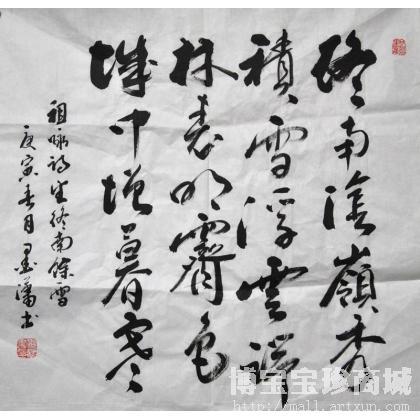 終南陰嶺秀
積雪浮雲端
林表明霽色
城中增暮寒
祖詠詩望終南餘雪
庚寅春月墨书
博宝宝珍商城
http://mall.artxun.com/